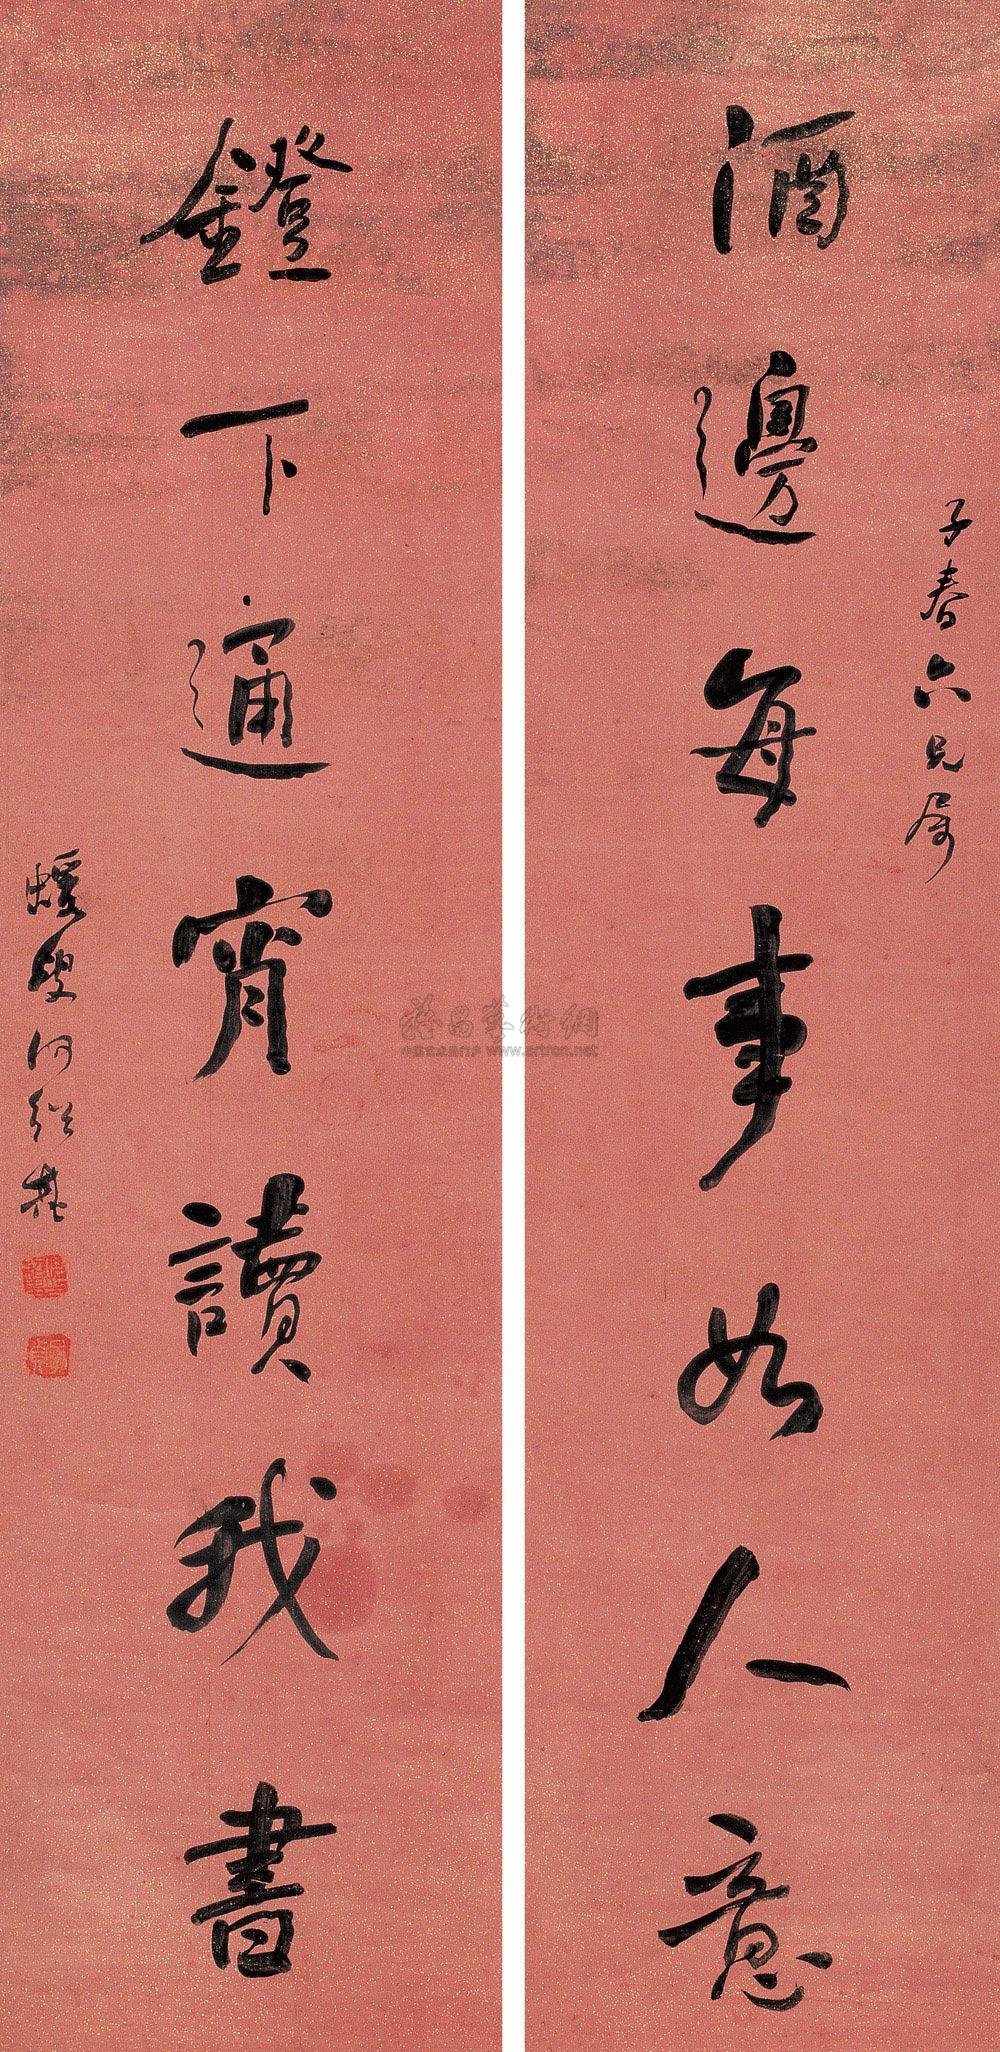 子春六兄属
酒邊每事如人意
鐙下通宵讀我書
蝯叟何紹基
雅昌藝術網
www.artron.net